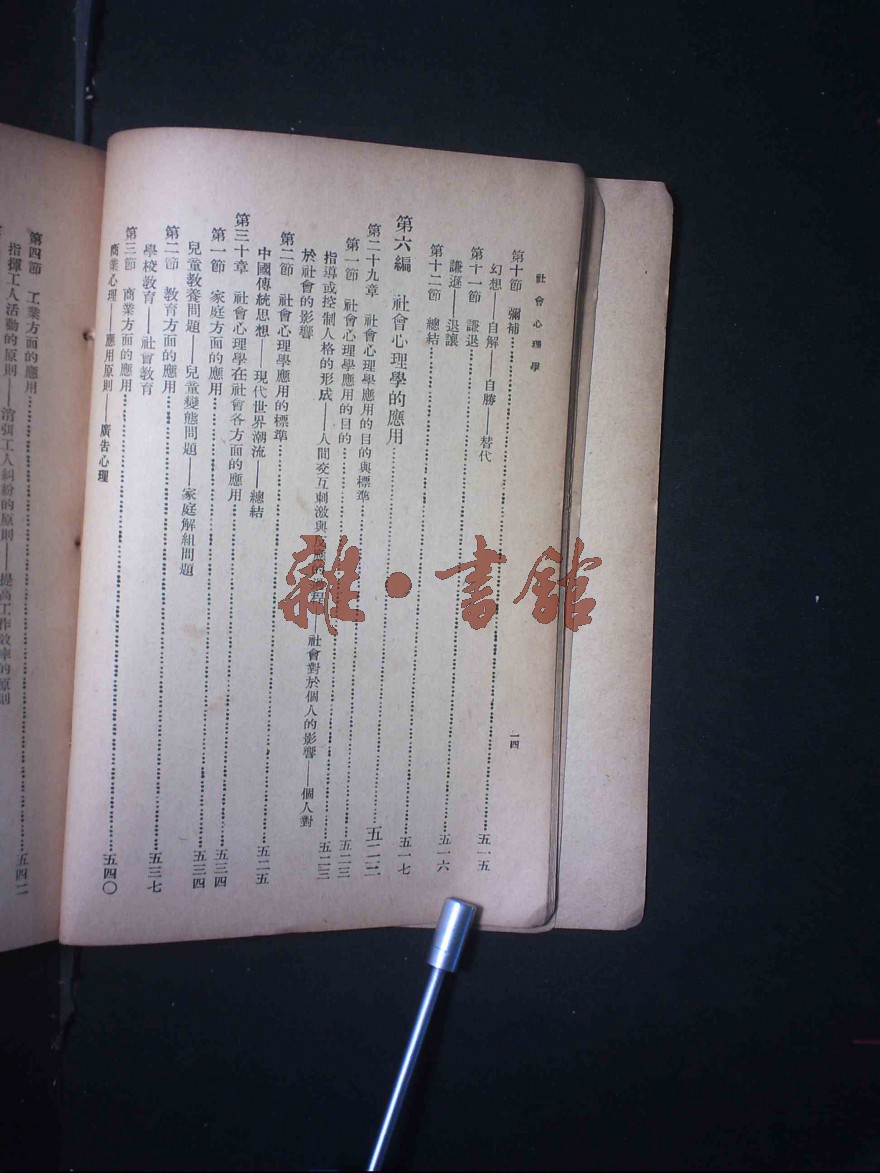 社會心理學
一四
第十節 彌補……五一五
幻想——自解——自勝——替代
第十一節 謙退……五一六
謙遜——退讓
第十二節 總結……五一七
第六編 社會心理學的應用……五二二
第二十九章 社會心理學應用的目的與標準……五二三
第一節 社會心理學應用的目的……五二三
指導或控制人格的形成——人間交互刺激與反應的過程——社會對於個人的影響——個人對
於社會的影響
第二節 社會心理學應用的標準……五二五
中國傳統思想——現代世界潮流——總結
第三十章 社會心理學在社會各方面的應用……五三四
第一節 家庭方面的應用……五三四
兒童教養問題——兒童變態問題——家庭解組問題
第二節 教育方面的應用……五三七
學校教育——社會教育
第三節 商業方面的應用……五四〇
商業心理——應用原則——廣告心理
第四節 工業方面的應用……五四二
指揮工人活動的原則——消弭工人糾紛的原則——提高工作效率的原則
雜·書館